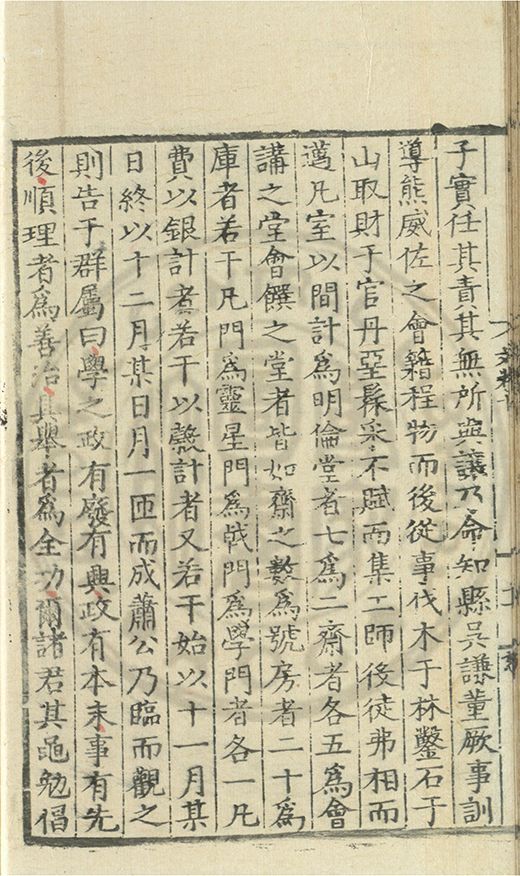 子實任其責其無所與讓乃命知縣吳謙董厥事訓
導熊威佐之會籍程物而後從事伐木于林鑿石于
山取財于官丹堊髹采不賦而集工師後徒弗相而
邁凡室以間計為明倫堂者七為二齋者各五為會
講之堂會饌之堂者皆如齋之數為號房者二十為
庫者若干凡門為靈星門為戟門為學門者各一凡
費以銀計者若干以縠計者又若干始以十一月某
日終以十二月某日月一匝而成蕭公乃臨而觀之
則告于群屬曰學之政有廢有興政有本末事有先
後順理者為善治具舉者為全功爾諸君其黽勉倡